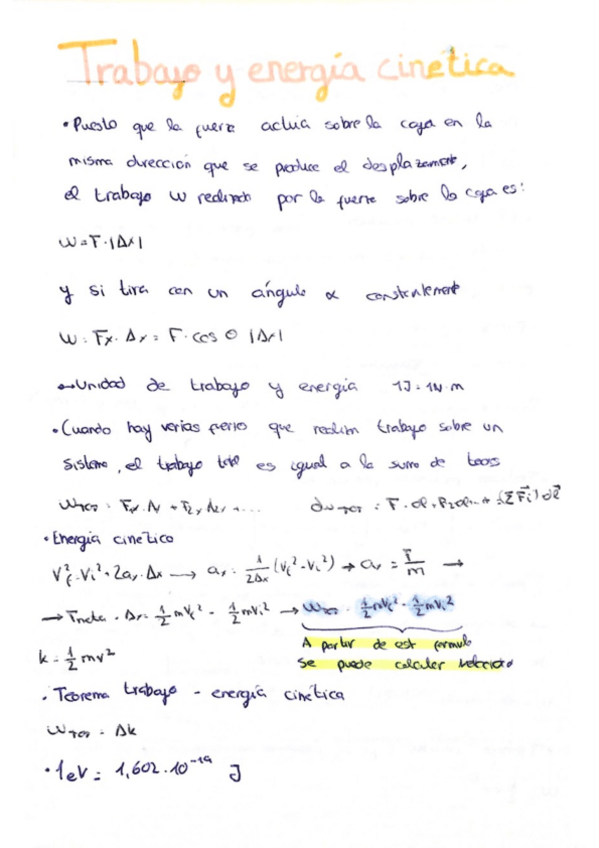 Trabajo y energía cinética
• Puesto que la fuerza actúa sobre la caja en la
misma dirección que se produce el desplazamiento,
el trabajo W realizado por la fuerza sobre la caja es:
W = F · |Δx|
y si tira con un ángulo α constantemente
W = Fx · Δx = F · cos θ |Δx|
→ Unidad de trabajo y energía 1J = 1N · m
• Cuando hay varias fuerzas que realizan trabajo sobre un
sistema, el trabajo total es igual a la suma de
+ ...
• Energía cinética
Vf² = Vi² + 2ax · Δx → ax = 1/2Δx (Vf² - Vi²) → ax = F/m →
→ Fneta · Δx = 1/2 mVf² - 1/2 mVi² → WTOT = 1/2 mVf² - 1/2 mVi²
A partir de est formula
se puede calcular
k = 1/2 mv²
• Teorema trabajo - energía cinética
WTOT = Δk
• 1eV = 1,602 · 10⁻¹⁹ J